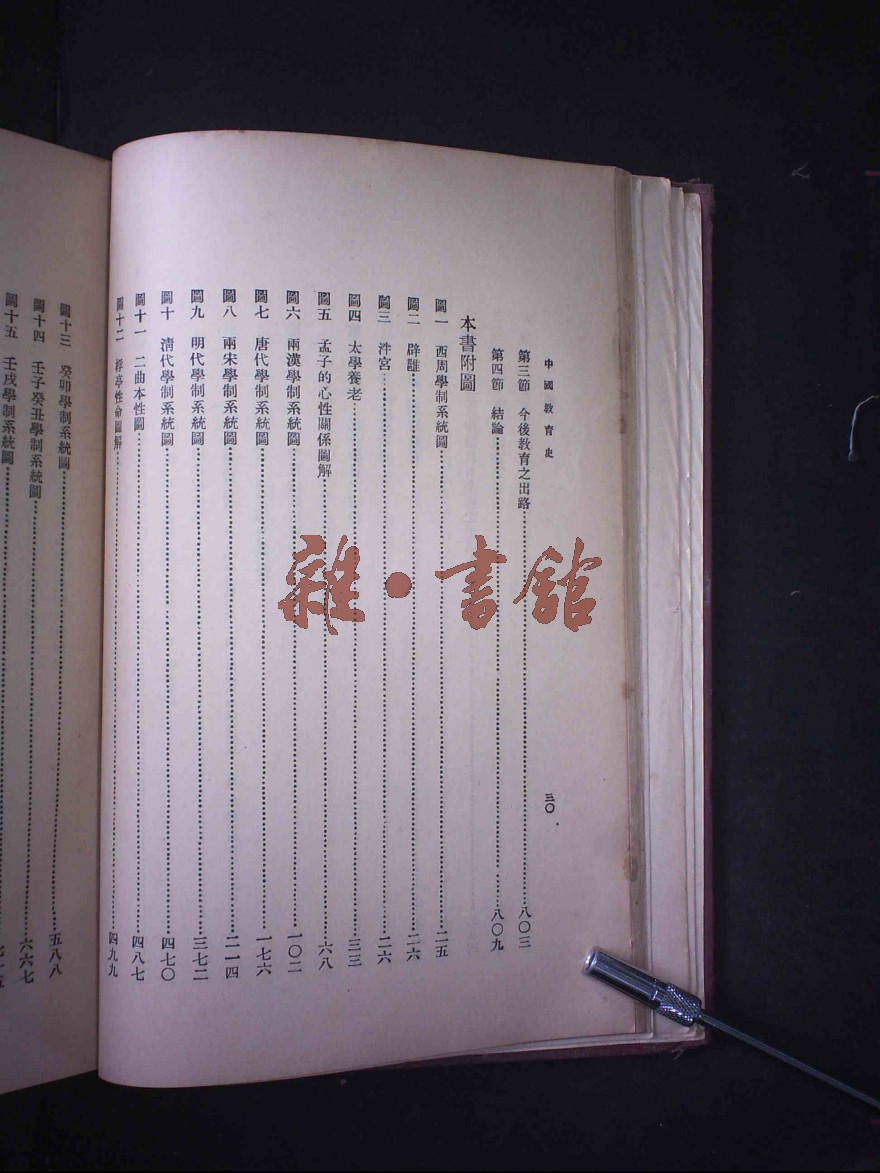 中國教育史
三〇
第三節 今後教育之出路……八〇三
第四節 結論……八〇九
本書附圖
圖一 西周學制系統圖……二五
圖二 辟雝……二六
圖三 泮宮……二六
圖四 太學養老……三三
圖五 孟子的心性關係圖解……六八
圖六 兩漢學制系統圖……一〇二
圖七 唐代學制系統圖……一七六
圖八 兩宋學制系統圖……二一四
圖九 明代學制系統圖……三七二
圖十 淸代學制系統圖……四七〇
圖十一 二曲本性圖……四八七
圖十二 桴亭性命圖解……四九九
圖十三 癸卯學制系統圖……五八八
圖十四 壬子癸丑學制系統圖……六六七
圖十五 壬戌學制系統圖……
雜·書館